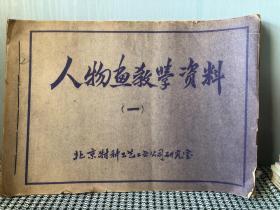 人物画教学资料
(一)
北京特种工艺工业公司研究室